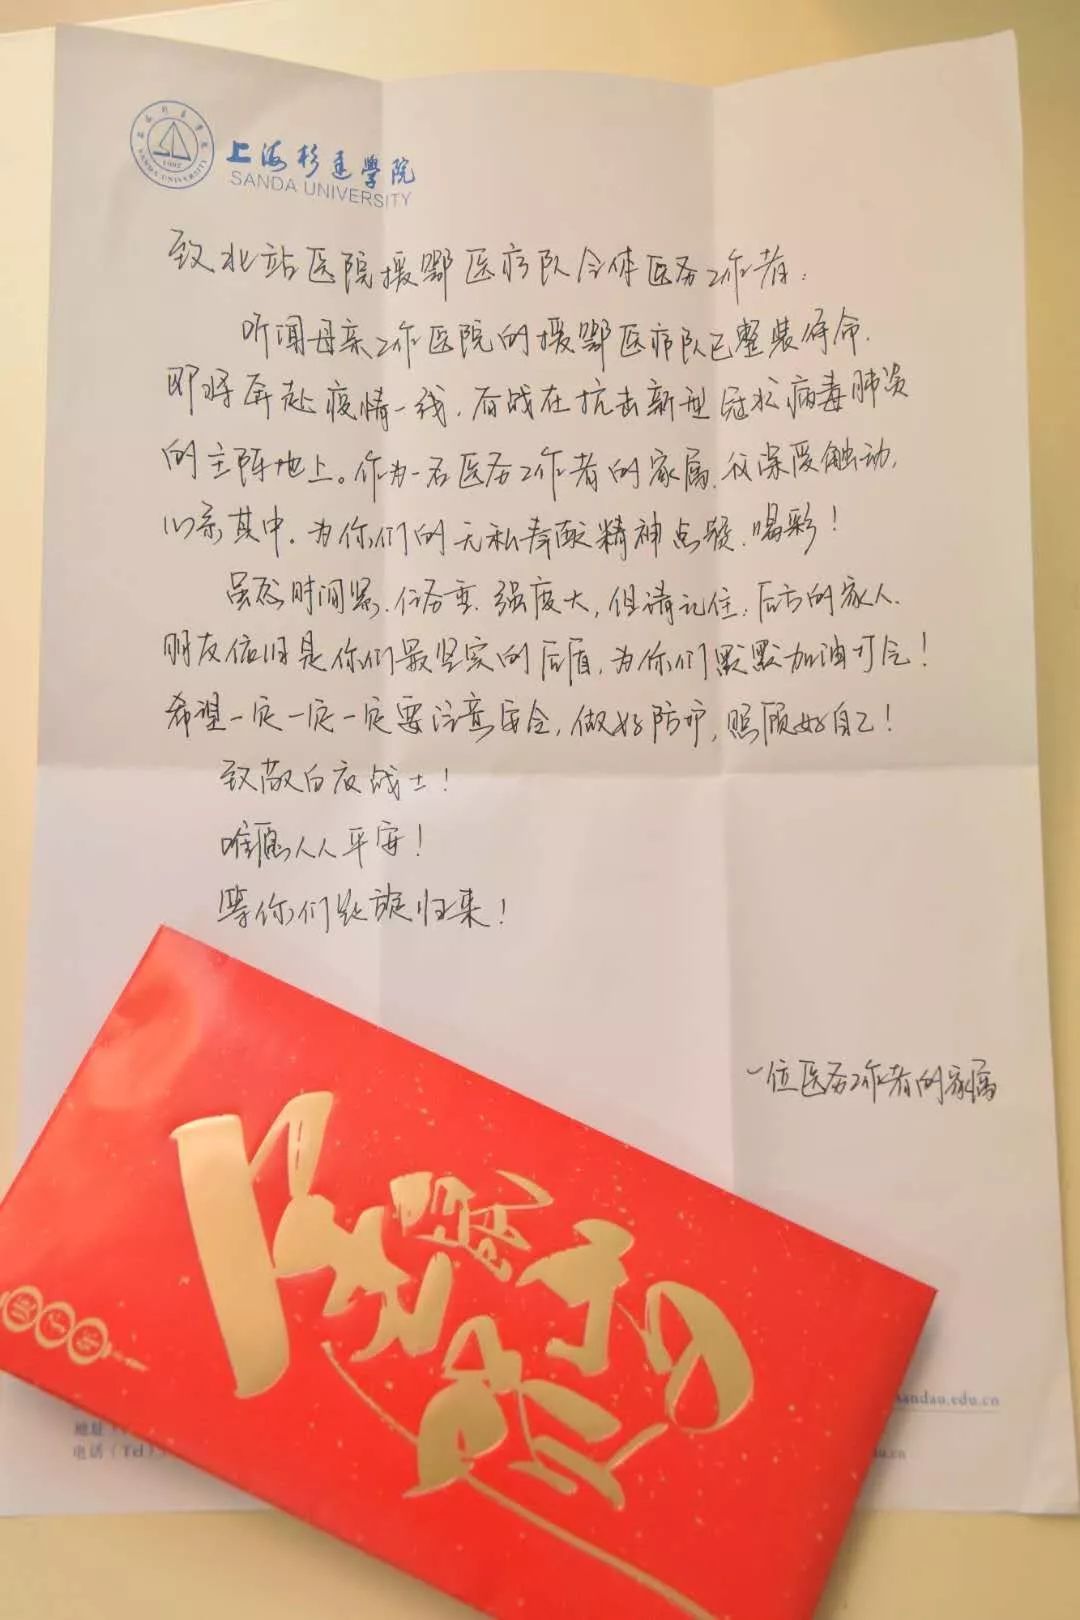 上海杉达学院
SANDA UNIVERSITY
SANDA UNIVERSITY
1992
致北站医院援鄂医疗队全体医务工作者：
听闻母亲工作医院的援鄂医疗队已整装待命，
即将奔赴疫情一线，奋战在抗击新型冠状病毒肺炎
的主阵地上。作为一名医务工作者的家属，我深受触动，
心系其中，为你们的无私奉献精神点赞、喝彩！
虽然时间紧、任务重、强度大，但请记住，后方的家人、
朋友依旧是你们最坚实的后盾，为你们默默加油打气！
希望一定一定一定要注意安全，做好防护，照顾好自己！
致敬白衣战士！
唯愿人人平安！
等你们凯旋归来！
一位医务工作者的家属
sandau.edu.cn
地址
电话（Tel）
u.cn